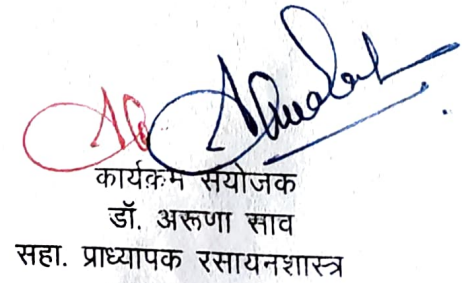 कार्यक्रम संयोजक
डॉ. अरूणा साव
सहा. प्राध्यापक रसायनशास्त्र